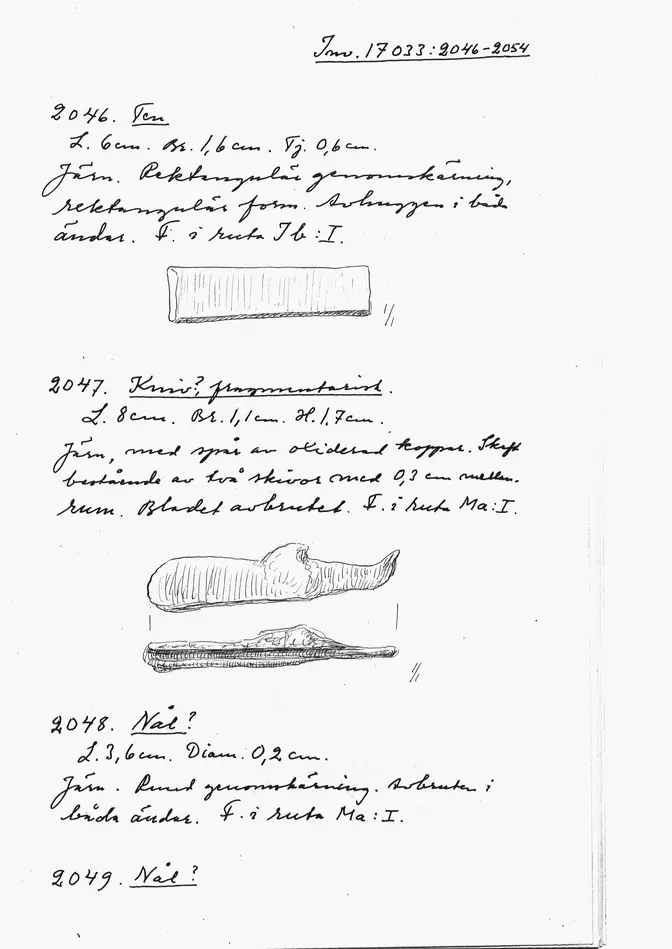 Inv. 17033:2046-2054
2046. Ten
L. 6cm. Br. 1,6cm. Tj. 0,6cm.
Järn. Rektangulär genomskärning,
rektangulär form. Avhuggen i båda
ändar. F. i ruta Ib:I.
1/1
2047. Kniv?, fragmentarisk.
L. 8cm. Br. 1,1cm. H. 1,7cm.
Järn, med spår av oxiderad koppar. Skaft
bestående av två skivor med 0,3 cm mellan-
rum. Bladet avbrutet. F. i ruta Ma:I.
1/1
2048. Nål?
L. 3,6cm. Diam. 0,2cm.
Järn. Rund genomskärning. Avbruten i
båda ändar. F. i ruta Ma:I.
2049. Nål?